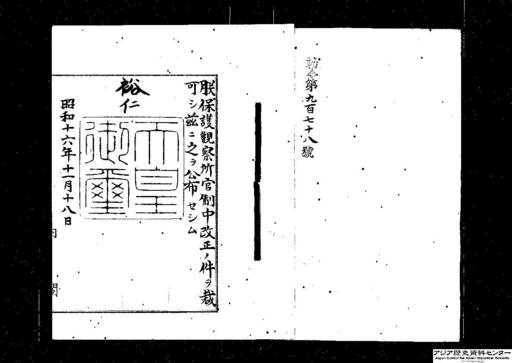 勅令第九百七十八號
朕保護觀察所官制中改正ノ件ヲ裁
可シ茲ニ之ヲ公布セシム
裕仁
天皇御璽
昭和十六年十一月十八日
内
閣
アジア歴史資料センター
Japan Center for Asian Historical Records